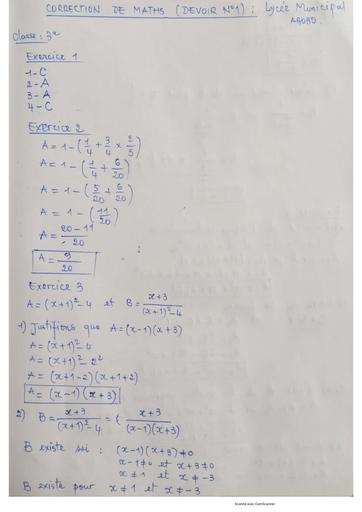 CORRECTION DE MATHS (DEVOIR N°1) : Lycée Municipal
ABOBO.
Classe : 3e
Exercice 1
1 - C
2 - A
3 - A
4 - C
Exercice 2
A = 1 - (1/4 + 3/4 × 2/5)
A = 1 - (1/4 + 6/20)
A = 1 - (5/20 + 6/20)
A = 1 - (11/20)
A = (20 - 11)/20
A = 9/20
Exercice 3
A = (x+1)² - 4 et B = (x+3)/((x+1)² - 4)
1) Justifions que A = (x-1)(x+3)
A = (x+1)² - 4
A = (x+1)² - 2²
A = (x+1-2)(x+1+2)
A = (x-1)(x+3)
2) B = (x+3)/((x+1)² - 4) = (x+3)/((x-1)(x+3))
B existe ssi : (x-1)(x+3) ≠ 0
x-1 ≠ 0 et x+3 ≠ 0
x ≠ 1 et x ≠ -3
B existe pour x ≠ 1 et x ≠ -3
Scanned with CamScanner